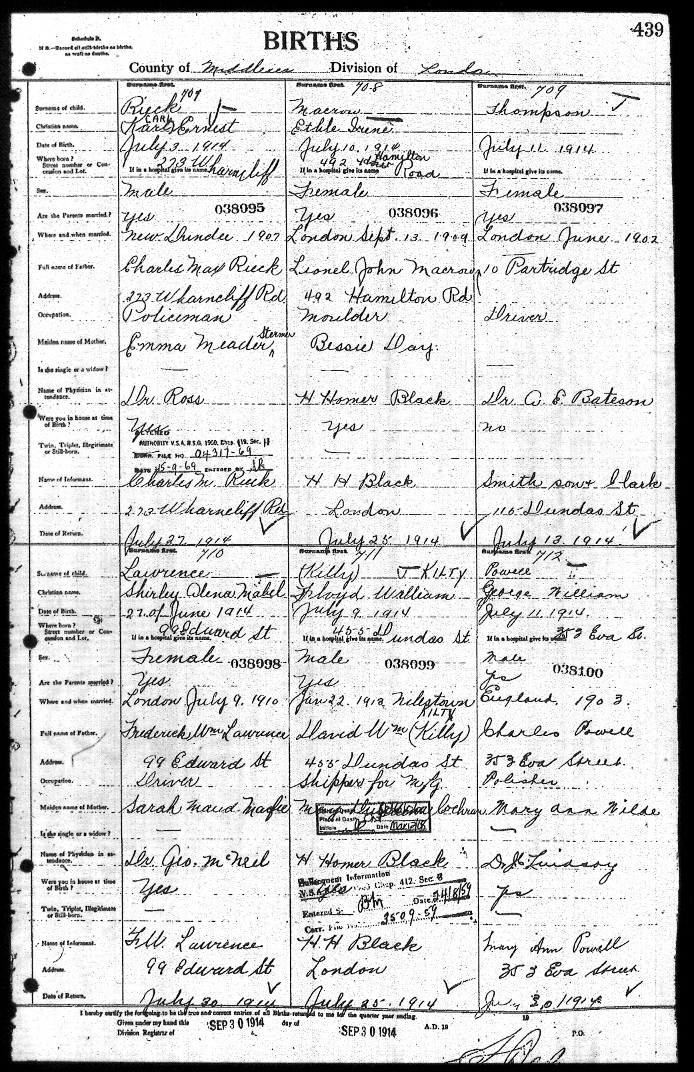 439
Schedule B.
N.B.—Record all still-births as births, as well as deaths.
BIRTHS
County of Middlesex Division of London
Surname first. Surname first. Surname first.
707 708 709
Surname of child. Rieck Macrow Thompson
Christian name. Karl CARL Ernest Ethle Irene
Date of Birth. July 3 1914 July 10, 1914 July 11 1914
Where born? Street number or Concession and Lot. 273 Wharncliff 492 Hamilton Road
If in a hospital give its name. If in a hospital give its name. If in a hospital give its name.
Sex. Male Female Female
038095 038096 038097
Are the Parents married? Yes Yes Yes
Where and when married. New Dundee 1907 London Sept. 13 1909 London June 1902
Full name of Father. Charles Max Rieck Lionel John Macrow 10 Partridge St
Address. 273 Wharncliff Rd 492 Hamilton Rd
Occupation. Policeman Moulder Driver
Maiden name of Mother. Emma Meader Bessie Day.
Is she single or a widow?
Name of Physician in attendance. Dr. Ross H Homer Black Dr. A. E. Bateson
Were you in house at time of Birth? Yes Yes no
Twin, Triplet, Illegitimate or Still-born.
AUTHORITY V.S.A. R.S.O. 1960. Chap. 419. Sec.
CORR. FILE NO. 04317-69
DATE 15-9-69 ENTERED BY
Name of Informant. Charles M. Rieck H H Black Smith son & Clark
Address. 273 Wharncliff Rd London 115 Dundas St
Date of Return. July 27. 1914 July 25 1914 July 13. 1914
Surname first. Surname first. Surname first.
710 711 712
Surname of child. Lawrence (Killy) KILTY Powell
Christian name. Shirley Alena Mabel Lloyd William George William
Date of Birth. 27 of June 1914 July 9 1914 July 11 1914.
Where born? Street number or Concession and Lot. 99 Edward St 455 Dundas St. 353 Eva St.
If in a hospital give its name. If in a hospital give its name. If in a hospital give its name.
Sex. Female Male Male
038098 038099 038100
Are the Parents married? Yes Yes yes
Where and when married. London July 9. 1910 Jan 22. 1913 Nilestown England 1903.
KILTY
Full name of Father. Frederick Wm Lawrence David Wm (Killy) Charles Powell
Address. 99 Edward St 455 Dundas St 353 Eva Street
Occupation. Driver Shipper for Polisher
Maiden name of Mother. Sarah Maud Cochran Mary Ann Wilde
Is she single or a widow?
Name of Physician in attendance. Dr. Geo. McNeil H Homer Black Dr Lindsay
Were you in house at time of Birth? Yes yes
Information
Chap. 412. Sec.
Date 24/8/59
Corr. File No. 3509-59
Twin, Triplet, Illegitimate or Still-born.
Name of Informant. F.W. Lawrence H H Black Mary Ann Powell
Address. 99 Edward St London 353 Eva Street
Date of Return. July 30 1914 July 25. 1914 30/1914
I hereby certify the foregoing to be the true and correct entries of all Births returned to me for the quarter year ending 19
Given under my hand this SEP 30 1914 day of SEP 30 1914 A.D. 19
Division Registrar of P.O.